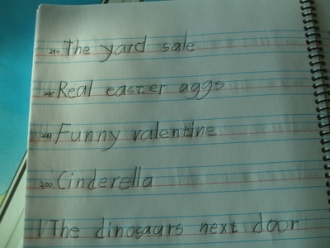 The yard sale
Real easter aggs
Funny valentine
300 Cinderella
The dinosaurs next door